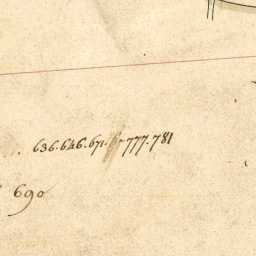 636.646.671. 777.781
690